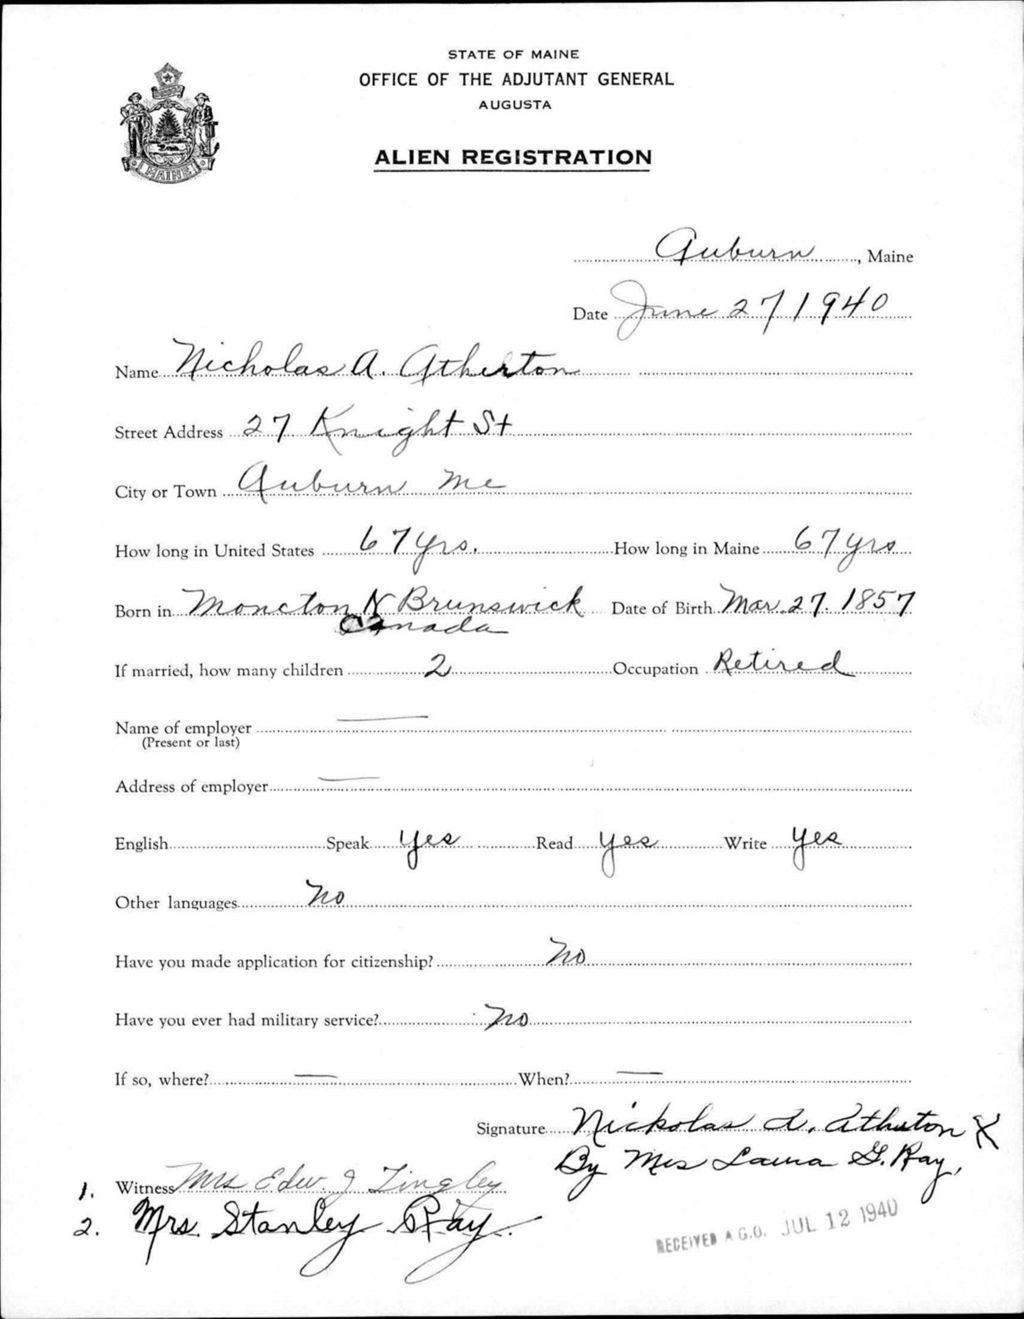 STATE OF MAINE
OFFICE OF THE ADJUTANT GENERAL
AUGUSTA
ALIEN REGISTRATION
MAINE
Auburn, Maine
Date June 27 / 1940
Name Nicholas A. Atherton
Street Address 27 Knight St
City or Town Auburn Me
How long in United States 67 yrs. How long in Maine 67 yrs
Born in Moncton N Brunswick Date of Birth Mar. 27. 1857
Canada
If married, how many children 2 Occupation Retired
Name of employer —
(Present or last)
Address of employer —
English Speak yes Read yes Write yes
Other languages No
Have you made application for citizenship? No
Have you ever had military service? No
If so, where? — When? —
Signature Nickolas A. Atherton X
By Mrs Laura G. Ray,
1. Witness Mrs Edw. J Tingley
2. Mrs. Stanley Ray.
RECEIVED A.G.O. JUL 12 1940